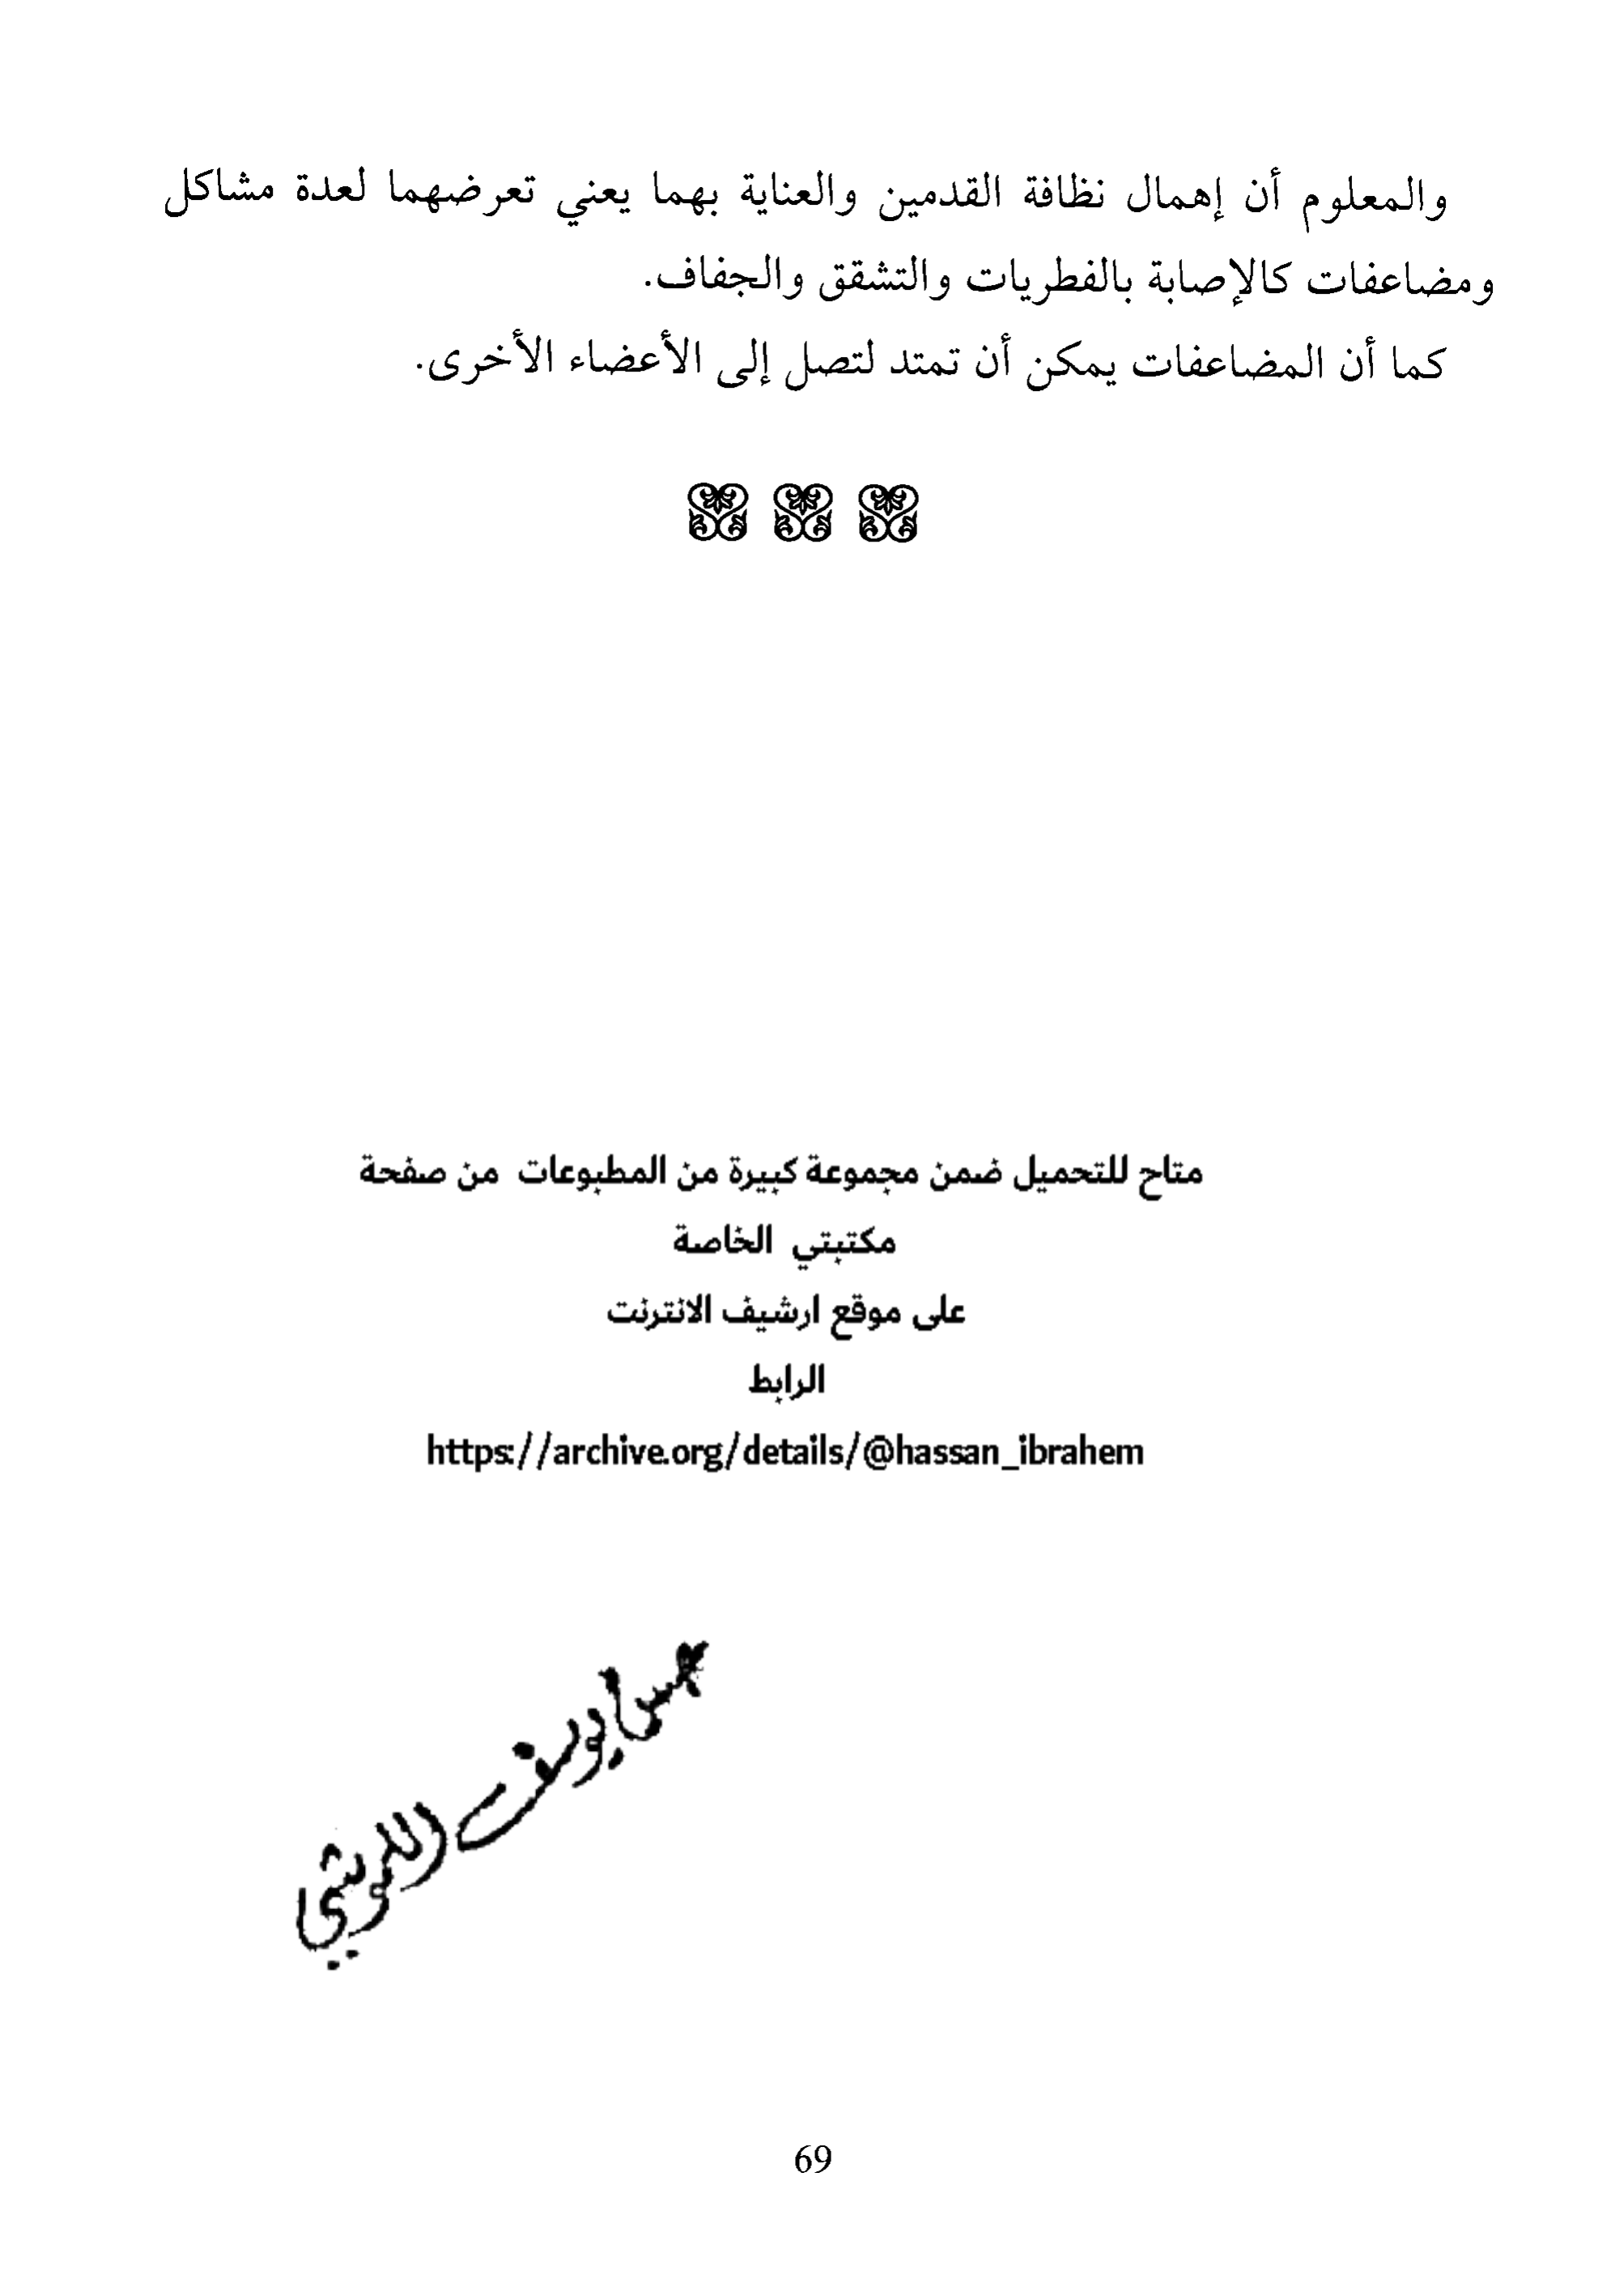 والمعلوم أن إهمال نظافة القدمين والعناية بهما يعني تعرضهما لعدة مشاكل
ومضاعفات كالإصابة بالفطريات والتشقق والجفاف.
كما أن المضاعفات يمكن أن تمتد لتصل إلى الأعضاء الأخرى.
متاح للتحميل ضمن مجموعة كبيرة من المطبوعات من صفحة
مكتبتي الخاصة
على موقع ارشيف الانترنت
الرابط
https://archive.org/details/@hassan_ibrahem
يوسف
69